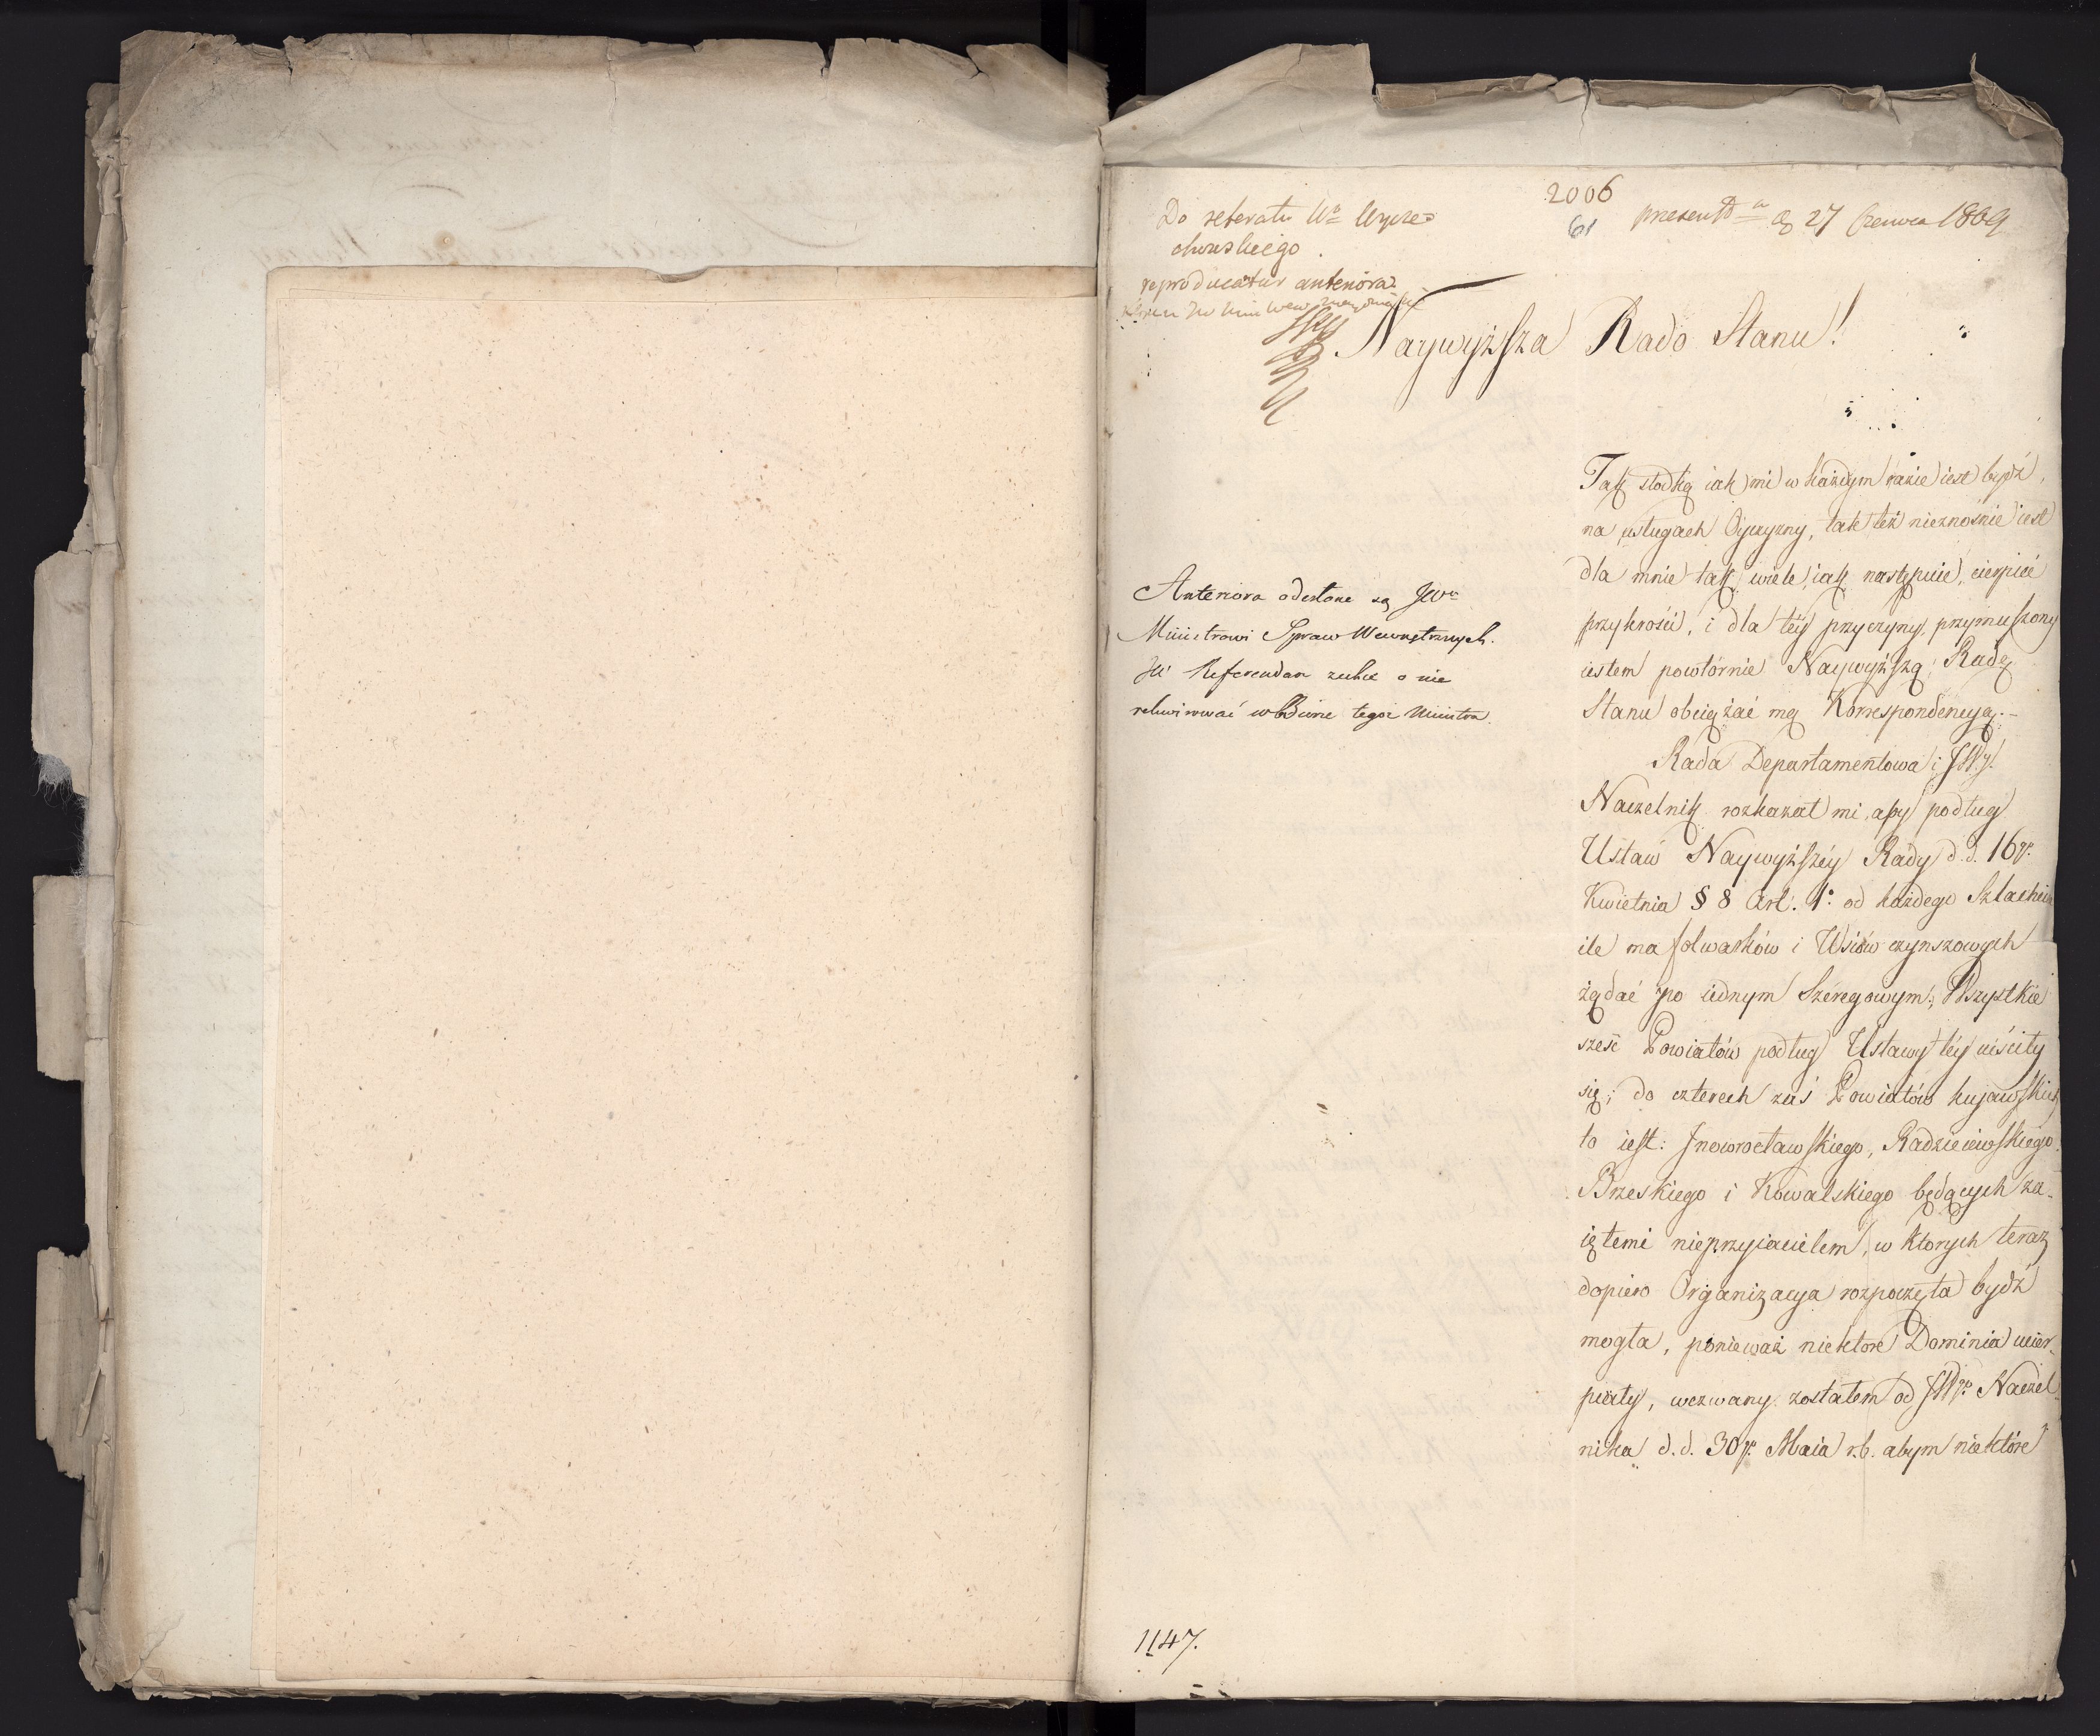 2006
61
Do referatu Wo Wycze=
chowskiego.
reproducatur anteriora
present d 27 Czerwca 1809
Naywyższa Rado Stanu!
Anteriora odesłane są JWu
Ministrowi Spraw Wewnętrznych.
JP Referendarz zechce o nie
rekwirować w biurze tegoż Ministra.
Tak słodką iak mi w każdym razie iest bydź
na usługach Oyczyzny, tak też nieznośnie iest
dla mnie tak wiele, iak następuie, cierpieć
przykrości, i dla téy przyczyny, przymuszony
iestem powtórnie Naywyższą Radę
Stanu obciążać mą Korrespondencyą.-
Rada Departamentowa i JW.
Naczelnik rozkazał mi, aby podług
Ustaw Naywyższéy Rady d.d. 16go
Kwietnia § 8 Art. 1o od każdego Szlachcica
ile ma folwarków i Wsiów czynszowych
żądać po iednym Szeregowym; Wszystkie
sześć Powiatów podług Ustawy téy uiściły
się; do czterech zaś Powiatów kujawskich
to iest: Jnowrocławskiego, Radzieiewskiego
Brzeskiego i Kowalskiego będących za-
iętemi nieprzyiacielem, w ktorych teraz
dopiero Organizacya rozpoczęta bydź
mogła, ponieważ niektore Dominia ucier-
piały, wezwany zostałem od JWgo Naczel-
nika d.d. 30go Maia r.b. abym niektóre
1147.